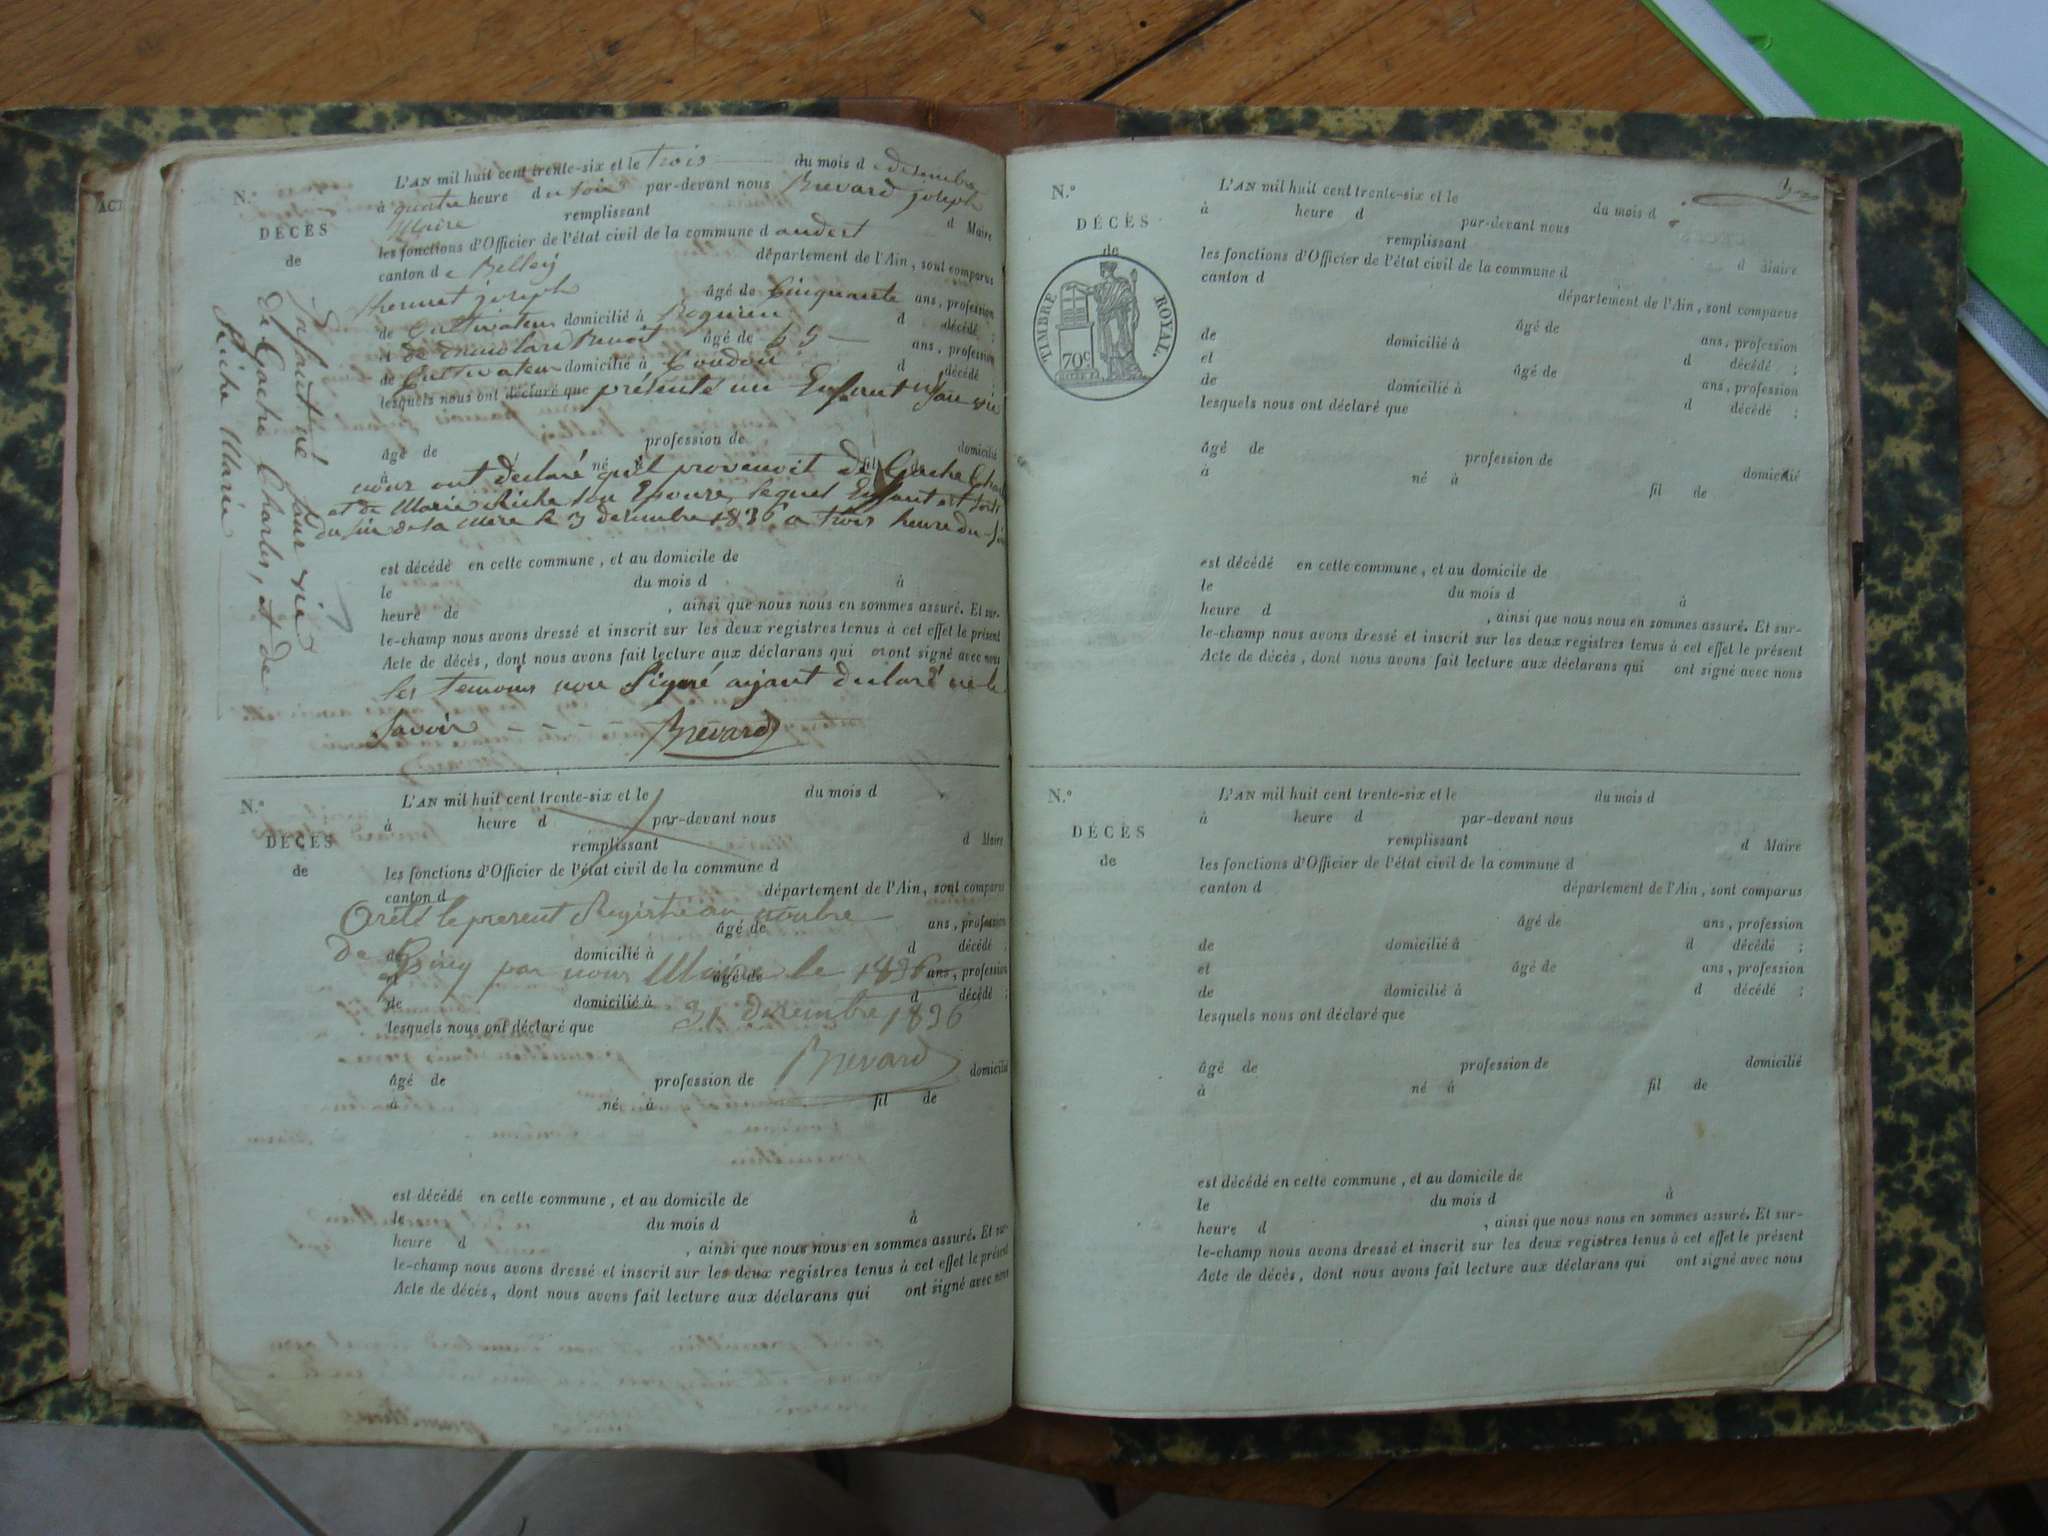 ACT
N.°
DÉCÈS
de
Enfant né sans vie
de Gache Charles, et de
Riche Marie
L'AN mil huit cent trente-six et le trois du mois d e desembre
à quatre heure d u soir par-devant nous Brevard joseph
Maire remplissant d Maire
les fonctions d'Officier de l'état civil de la commune d andert
canton d e Belley département de l'Ain, sont comparus
joseph âgé de Cinquante ans, profession
de Cultivateur domicilié à d décédé ;
et de Benoit âgé de 55 ans, profession
de Cultivateur domicilié à Condon d décédé ;
lesquels nous ont déclaré que présenté un Enfant sans vie
âgé de profession de domicilié
à né à fil de
nous ont declaré qu'il provenoit de Gache Charles
et de Marie Riche son Epouse, lequel Enfant est sorti
du sin de la Mère le 3 decembre 1836 a trois heure du soir
est décédé en cette commune, et au domicile de
le du mois d à
heure de , ainsi que nous nous en sommes assuré. Et sur-
le-champ nous avons dressé et inscrit sur les deux registres tenus à cet effet le présent
Acte de décès, dont nous avons fait lecture aux déclarans qui ont signé avec nous
les temoins non Signé ayant declaré ne le
savoir
Brevard
N.°
DÉCÈS
de
L'AN mil huit cent trente-six et le du mois d
à heure d par-devant nous
remplissant d Maire
les fonctions d'Officier de l'état civil de la commune d
canton d département de l'Ain, sont comparus
Arêté le present Registre au nonbre
âgé de ans, profession
de domicilié à d décédé ;
de Cinq par nous Maire le 1836
et âgé de ans, profession
de domicilié à d décédé ;
31 decembre 1836
lesquels nous ont déclaré que
Brevard
âgé de profession de domicilié
à né à fil de
est décédé en cette commune, et au domicile de
le du mois d à
heure d , ainsi que nous nous en sommes assuré. Et sur-
le-champ nous avons dressé et inscrit sur les deux registres tenus à cet effet le présent
Acte de décès, dont nous avons fait lecture aux déclarans qui ont signé avec nous
N.°
DÉCÈS
de
TIMBRE ROYAL.
70c
L'AN mil huit cent trente-six et le du mois d
à heure d par-devant nous
remplissant d Maire
les fonctions d'Officier de l'état civil de la commune d
canton d département de l'Ain, sont comparus
âgé de ans, profession
de domicilié à d décédé ;
et âgé de ans, profession
de domicilié à d décédé ;
lesquels nous ont déclaré que
âgé de profession de domicilié
à né à fil de
est décédé en cette commune, et au domicile de
le du mois d à
heure d , ainsi que nous nous en sommes assuré. Et sur-
le-champ nous avons dressé et inscrit sur les deux registres tenus à cet effet le présent
Acte de décès, dont nous avons fait lecture aux déclarans qui ont signé avec nous
N.°
DÉCÈS
de
L'AN mil huit cent trente-six et le du mois d
à heure d par-devant nous
remplissant d Maire
les fonctions d'Officier de l'état civil de la commune d
canton d département de l'Ain, sont comparus
âgé de ans, profession
de domicilié à d décédé ;
et âgé de ans, profession
de domicilié à d décédé ;
lesquels nous ont déclaré que
âgé de profession de domicilié
à né à fil de
est décédé en cette commune, et au domicile de
le du mois d à
heure d , ainsi que nous nous en sommes assuré. Et sur-
le-champ nous avons dressé et inscrit sur les deux registres tenus à cet effet le présent
Acte de décès, dont nous avons fait lecture aux déclarans qui ont signé avec nous